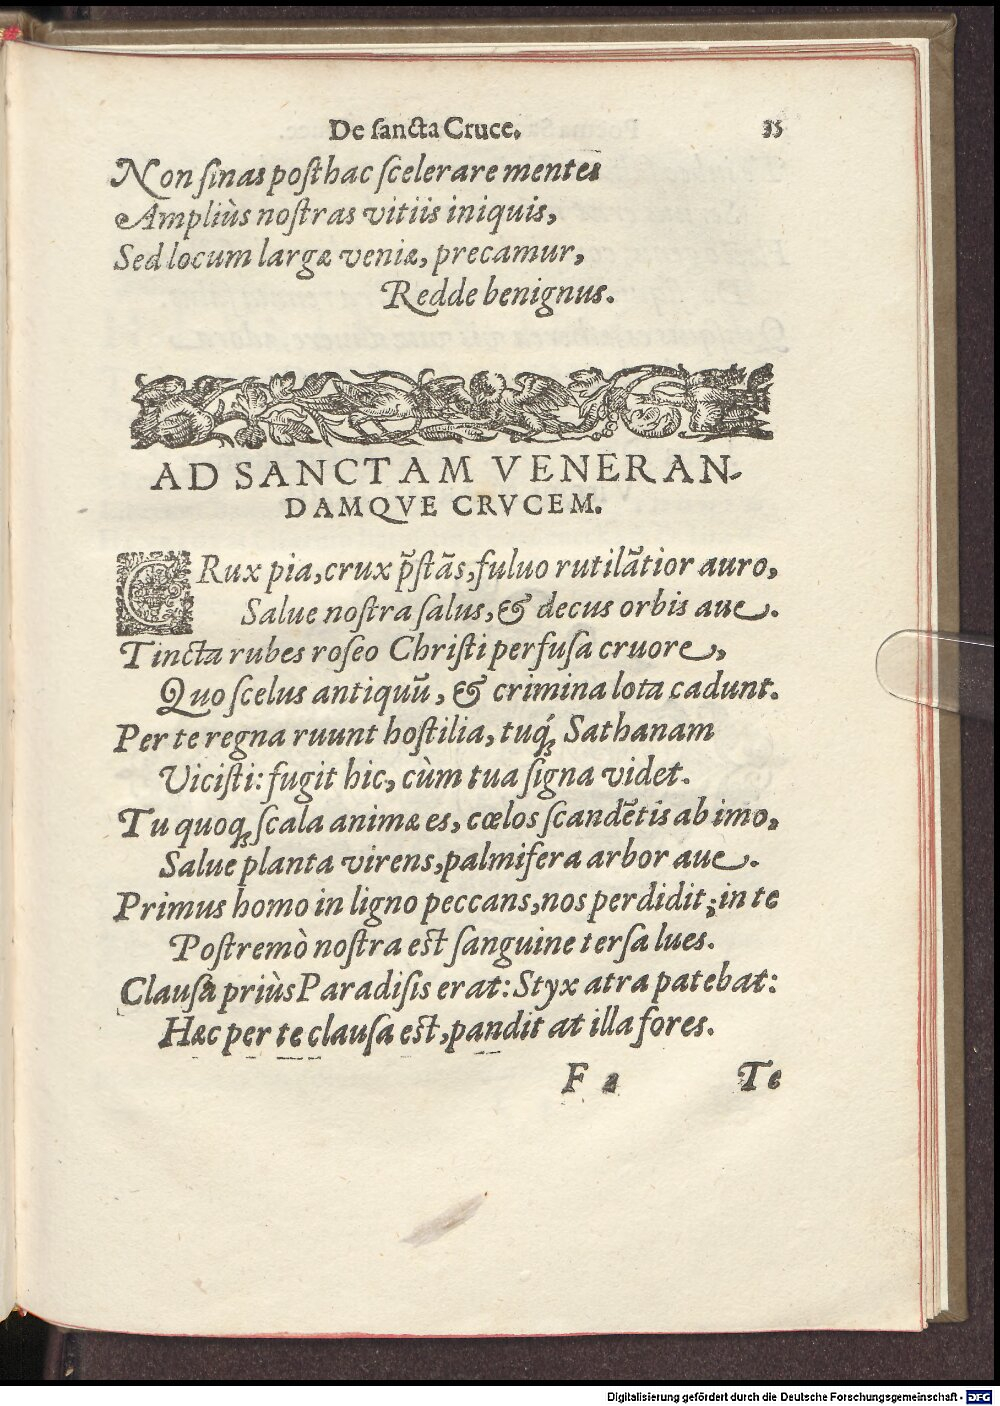 De ſancta Cruce. 35
Non ſinas poſthac ſcelerare mentes
Ampliùs noſtras vitiis iniquis,
Sed locum largæ veniæ, precamur,
Redde benignus.
AD SANCTAM VENERAN-
DAMQVE CRVCEM.
CRux pia, crux p̃ſtãs, fuluo rutilãtior auro,
Salue noſtra ſalus, & decus orbis aue.
Tincta rubes roſeo Chriſti perfuſa cruore,
Quo ſcelus antiquũ, & crimina lota cadunt.
Per te regna ruunt hoſtilia, tuq́ꝫ Sathanam
Viciſti: fugit hic, cùm tua ſigna videt.
Tu quoqꝫ ſcala animæ es, cœlos ſcandẽtis ab imo,
Salue planta virens, palmifera arbor aue.
Primus homo in ligno peccans, nos perdidit; in te
Poſtremò noſtra eſt ſanguine terſa lues.
Clauſa priùs Paradiſis erat: Styx atra patebat:
Hæc per te clauſa eſt, pandit at illa fores.
F 2 Te
Digitalisierung gefördert durch die Deutsche Forschungsgemeinschaft - DFG